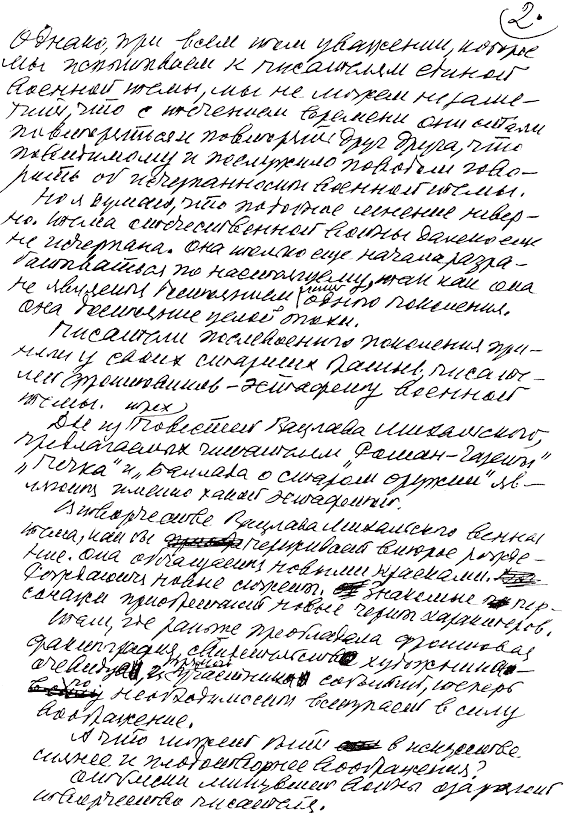 2.
Однако, при всем том уважении, которое
мы испытываем к писателям единой
военной темы, мы не можем не заме-
тить, что с течением времени они стали
повторяться и повторять друг друга, что
по видимому и послужило поводом гово-
рить об исчерпанности военной темы.
Но я думаю, что подобное мнение невер-
но. Тема отечественной войны далеко еще
не исчерпана. Она только еще начала разра-
батываться по настоящему, так как она
не является достоянием лишь одного поколения.
Она достояние целой эпохи.
Писатели послевоенного поколения при-
няли у своих старших братьев, писате-
лей фронтовиков – эстафету военной
темы.
Две из трех повестей Вацлава Михальского,
предлагаемых читателям "Роман-Газеты"
"Печка" и "Баллада о старом оружии" яв-
ляются именно такой эстафетой.
В творчестве Вацлава Михальского военная
тема, как бы переживает второе рожде-
ние. Она обогащается новыми красками.
Рождаются новые сюжеты. Знакомые пер-
сонажи приобретают новые черты характеров.
Там, где раньше преобладала фронтовая
фактография, свидетельство художника –
очевидца, участника событий, теперь
по необходимости вступает в силу
воображение.
А что может быть в искусстве
сильнее и плодотворнее воображения?
Отблески минувшей войны озаряют
творчество писателя.